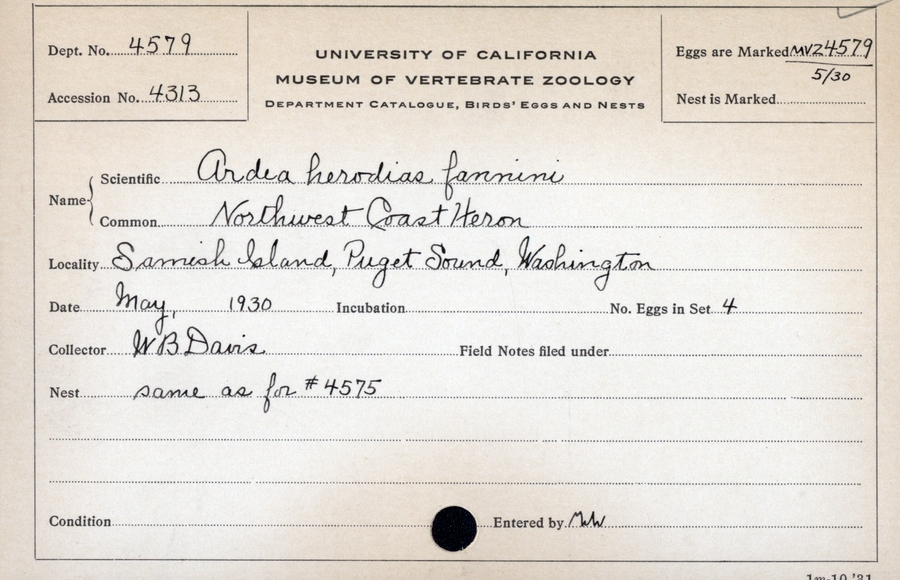 Dept. No. 4579
Accession No. 4313
UNIVERSITY OF CALIFORNIA
MUSEUM OF VERTEBRATE ZOOLOGY
DEPARTMENT CATALOGUE, BIRDS' EGGS AND NESTS
Eggs are Marked MVZ4579
5/30
Nest is Marked
Name
Scientific Ardea herodias fannini
Common Northwest Coast Heron
Locality Samish Island, Puget Sound, Washington
Date May, 1930 Incubation No. Eggs in Set 4
Collector W B Davis Field Notes filed under
Nest same as for #4575
Condition Entered by
1m-10,'31